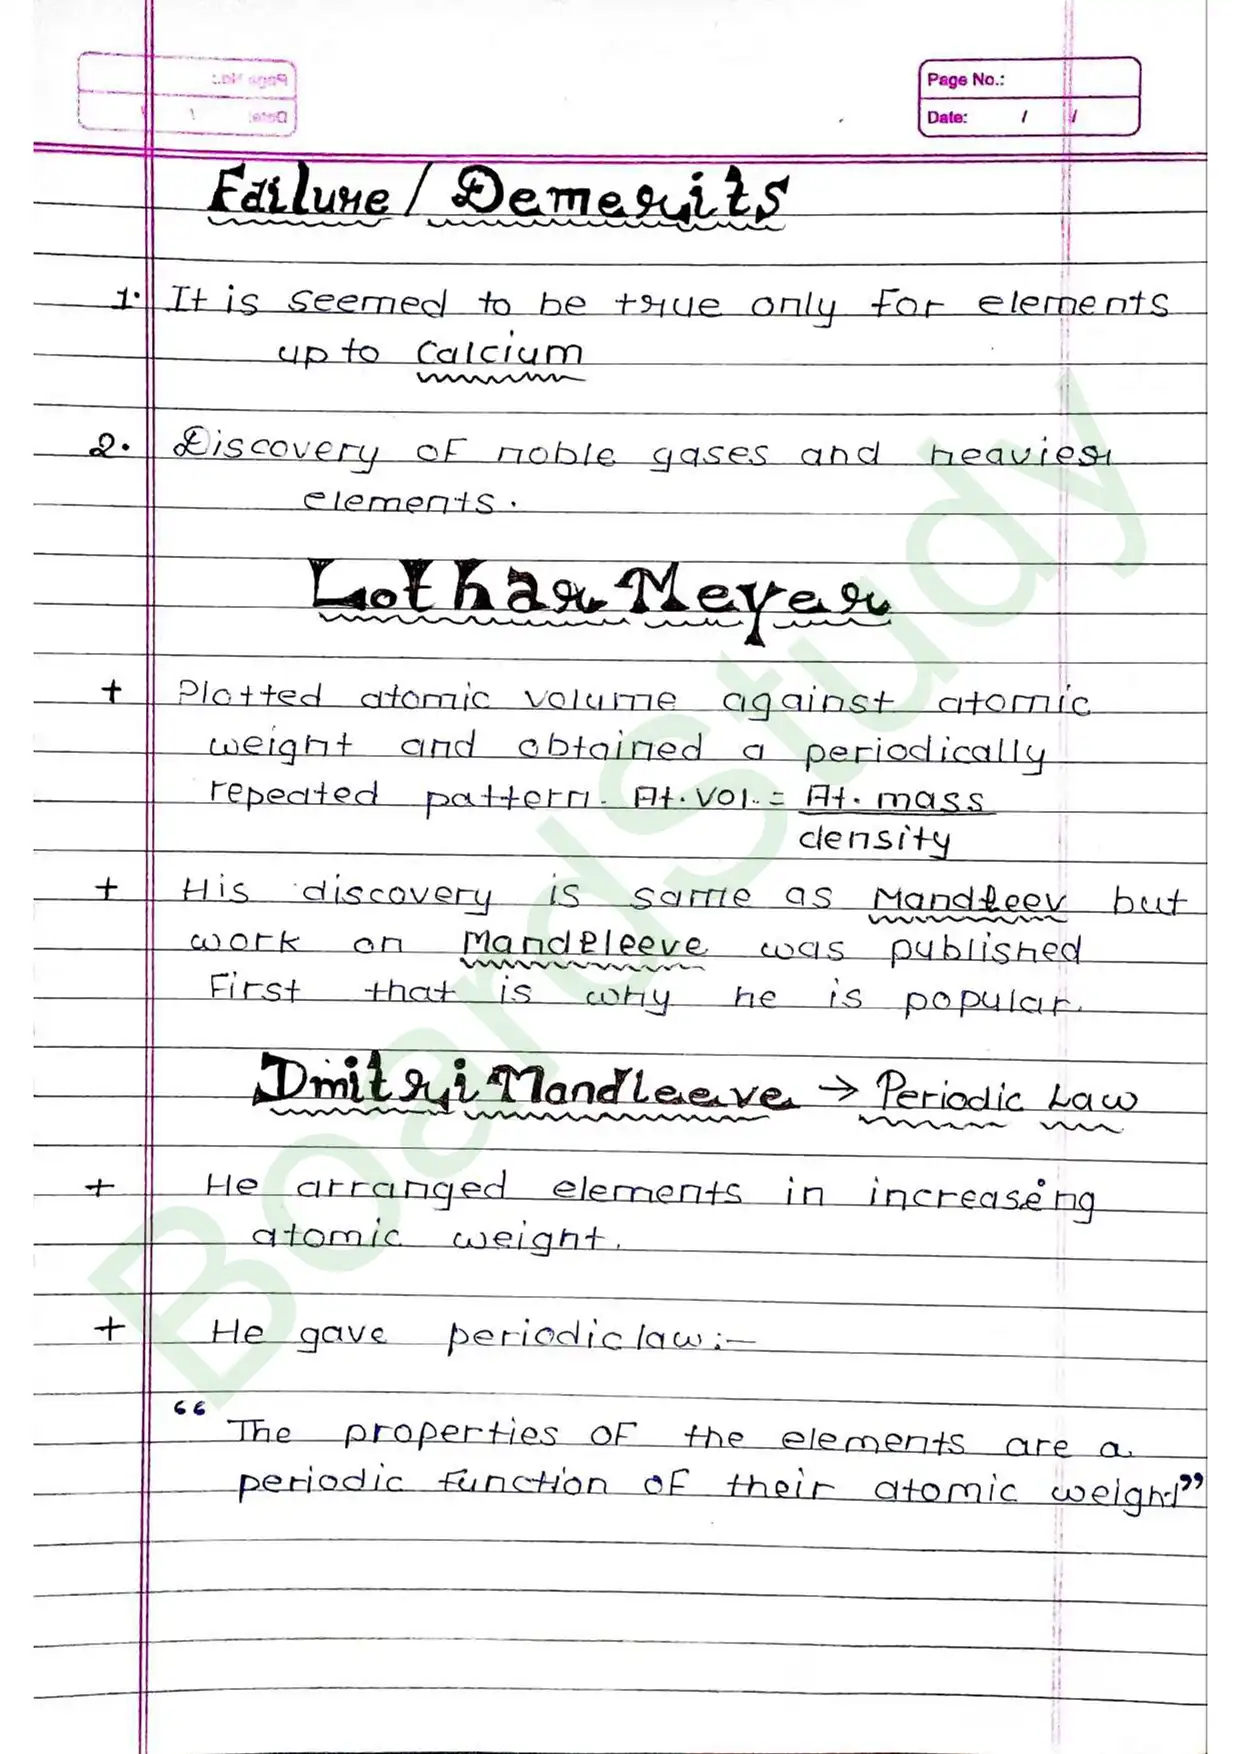 Page No.:
Date: / /
Failure / Demerits
1. It is seemed to be true only for elements
up to Calcium
2. Discovery of noble gases and heavier
elements.
Lothar Meyer
+ Plotted atomic volume against atomic
weight and obtained a periodically
repeated pattern. At. vol. = At. mass
density
+ His discovery is same as Mandleev but
work on Mandeleeve was published
First that is why he is popular.
Dmitri Mandleeve → Periodic Law
+ He arranged elements in increasing
atomic weight.
+ He gave periodic law:-
“The properties of the elements are a
periodic function of their atomic weight”
BoardStudy